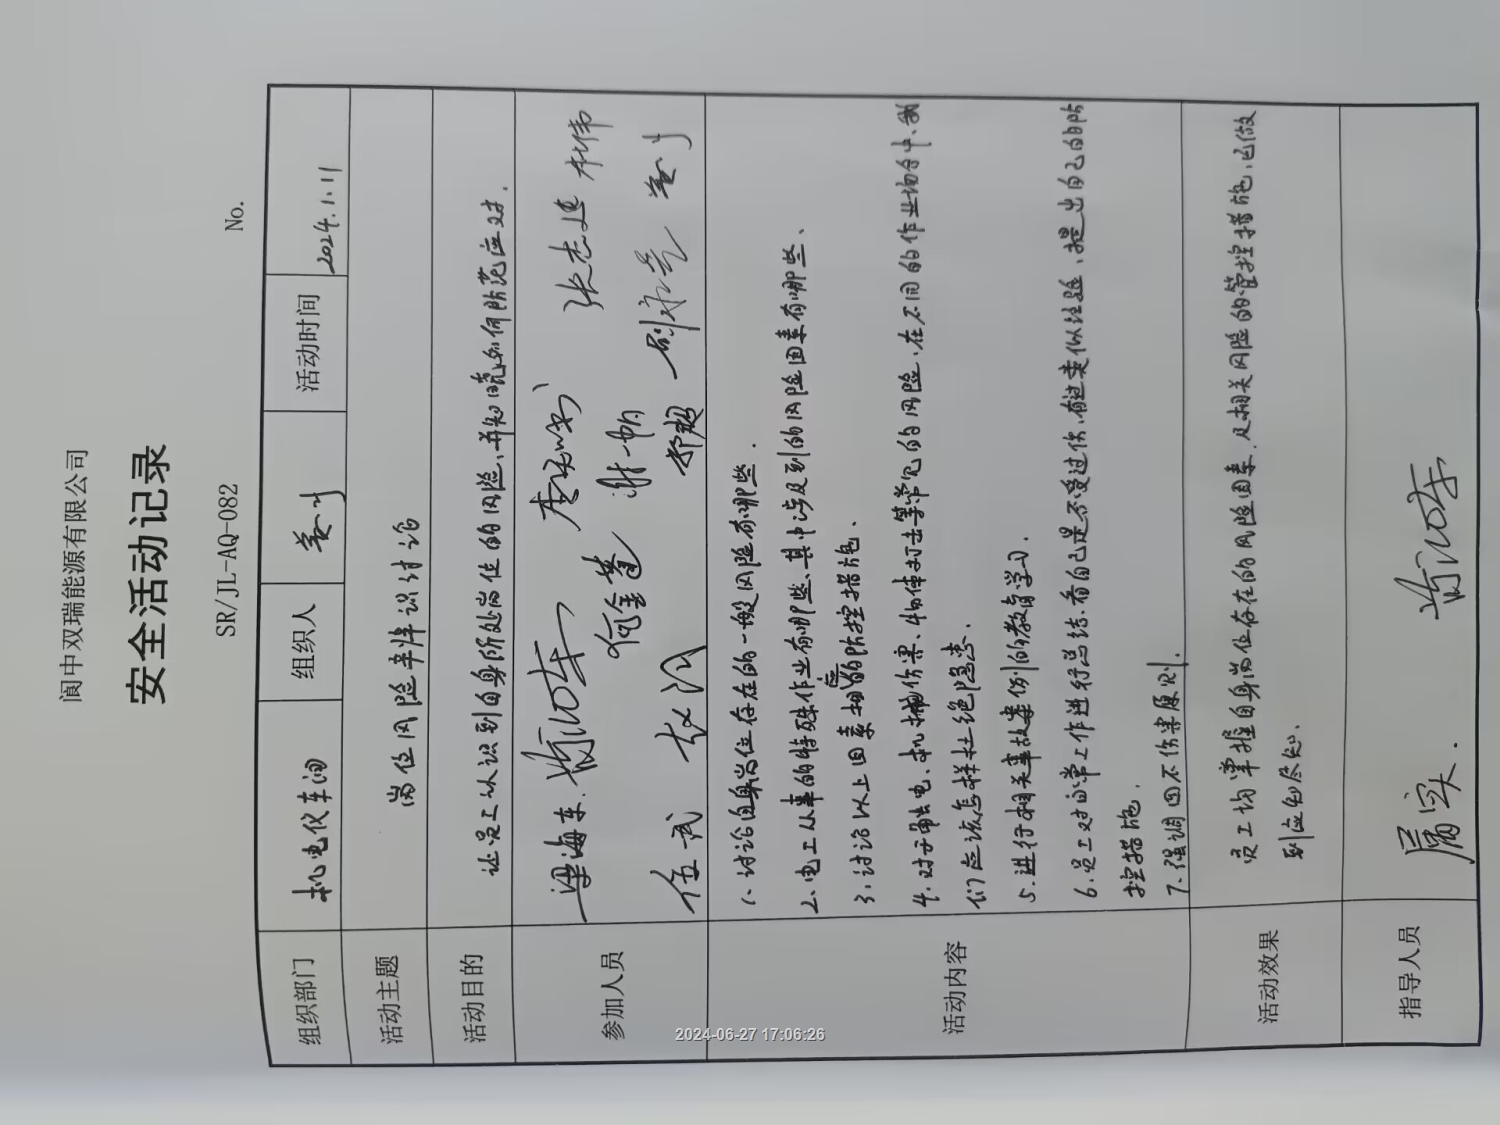 阆中双瑞能源有限公司
安全活动记录
SR/JL-AQ-082
No.
组织部门 机电仪车间 组织人 活动时间 2024.1.11
活动主题 岗位风险辛辨识讨论
活动目的 让员工认识到自身所处岗位的风险、并知晓如何防范应对.
参加人员 梁海东. 张志建 林伟
何金蓬 谢一帆
任武 舒超
活动内容
1、讨论自身岗位存在的一般风险有哪些.
2、电工从事的特殊作业有哪些、其中涉及到的风险因素有哪些、
3、讨论以上因素相应的防控措施.
4、对于触电、机械伤害、物体打击等常见的风险、在不同的作业场合中、我
们应该怎样杜绝隐患.
5、进行相关事故案例的教育学习.
6、员工对日常工作进行总结.看自己是不受过伤、有过类似经验、提出自己的防
控措施.
7、强调四不伤害原则.
活动效果 员工均掌握自身岗位存在的风险因素、及相关风险的管控措施、已做
到应知尽知.
指导人员
2024-06-27 17:06:26